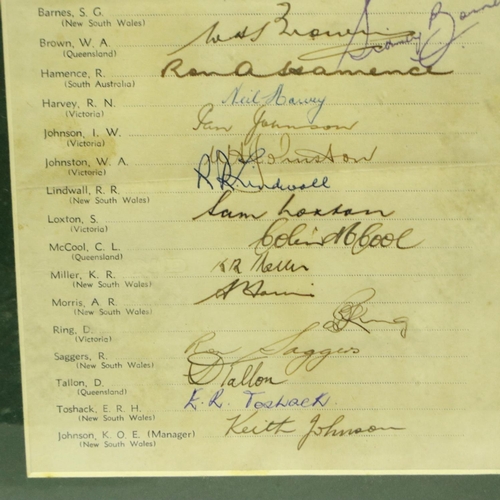 Barnes, S. G.
(New South Wales)
Sidney Barnes
Brown, W. A.
(Queensland)
W A Brown
Hamence, R.
(South Australia)
Ron A Hamence
Harvey, R. N.
(Victoria)
Neil Harvey
Johnson, I. W.
(Victoria)
Ian Johnson
Johnston, W. A.
(Victoria)
W A Johnston
Lindwall, R. R.
(New South Wales)
R R Lindwall
Loxton, S.
(Victoria)
Sam Loxton
McCool, C. L.
(Queensland)
Colin McCool
Miller, K. R.
(New South Wales)
KR Miller
Morris, A. R.
(New South Wales)
A Morris
Ring, D.
(Victoria)
D Ring
Saggers, R.
(New South Wales)
Ron Saggers
Tallon, D.
(Queensland)
D Tallon
Toshack, E. R. H.
(New South Wales)
E. R. Toshack
Johnson, K. O. E. (Manager)
(New South Wales)
Keith Johnson